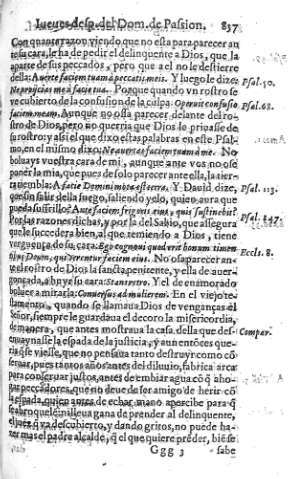 Iueues desp. del Dom. de Passion. 837
Con quanta razon, viendo que no esta para parecer an
te su cara, le ha de pedir el delinquente a Dios, que la
aparte de sus peccados, pero que a el no le destierre
della: Auerte faciem tuam à peccatis meis. Y luego le dize:
Psal. 50.
Ne proijcias me à facie tua. Porque quando vn rostro se
ve cubierto de la confusion de la culpa: Operuit confusio
Psal. 68.
faciem meam. Aunque no osa parecer delante del ro-
stro de Dios, pero no querria que Dios le priuasse de
su rostro: y assi el que dixo estas palabras en este Psal
mo, en el mismo dixo: Ne auertas faciem tuam à me. No
boluays vuestra cara de mi, aunque ante vos no ose
poner la mia, que pues de solo parecer ante ella, la tier
ra tiembla: A facie Domini mota est terra. Y Dauid dize,
Psal. 113.
que sin salir della fuego, saliendo yelo, quien aura que
pueda sufrillo? Ante faciem frigoris eius, quis sustinebit?
Psal. 147.
Por las razones dichas, y por la del Sabio, que assegura
que le succedera bien, al que temiendo a Dios, tiene
verguença de su cara: Ego cognoui quod erit bonum timen
Eccls. 8.
tibus Deum, qui verentur faciem eius. No osa parecer an
te el rostro de Dios la sancta penitente, y ella de auer-
gonçada, a bhy se su cara: Stans retro. Y el de enamorado
boluer a mirarla: Conuersus ad mulierem. En el viejo te-
stamento, quando se llamaua Dios de venganças el
Señor, siempre le guardaua el decoro la misericordia,
de manera, que antes mostraua la cara della que des-
Compar.
emuaynasse la espada de la justicia, y aun entonces que-
ria q̃ se viesse, que no pensaua tanto destruyr como cõ
seruar, pues tantos años antes del diluuio, fabrica arca
para conseruar justos, antes de embiar agua cõ q̃ aho-
gar peccadores, que no deue de ser amigo de herir cõ
la espada, quien antes de echar mano apercibe para q̃
se
el juez q̃ va descubierto, y dando gritos, no puede ha-
zer mas el padre alcalde, q̃ el que quiere prẽder, biẽ se
Ggg 3 sabe